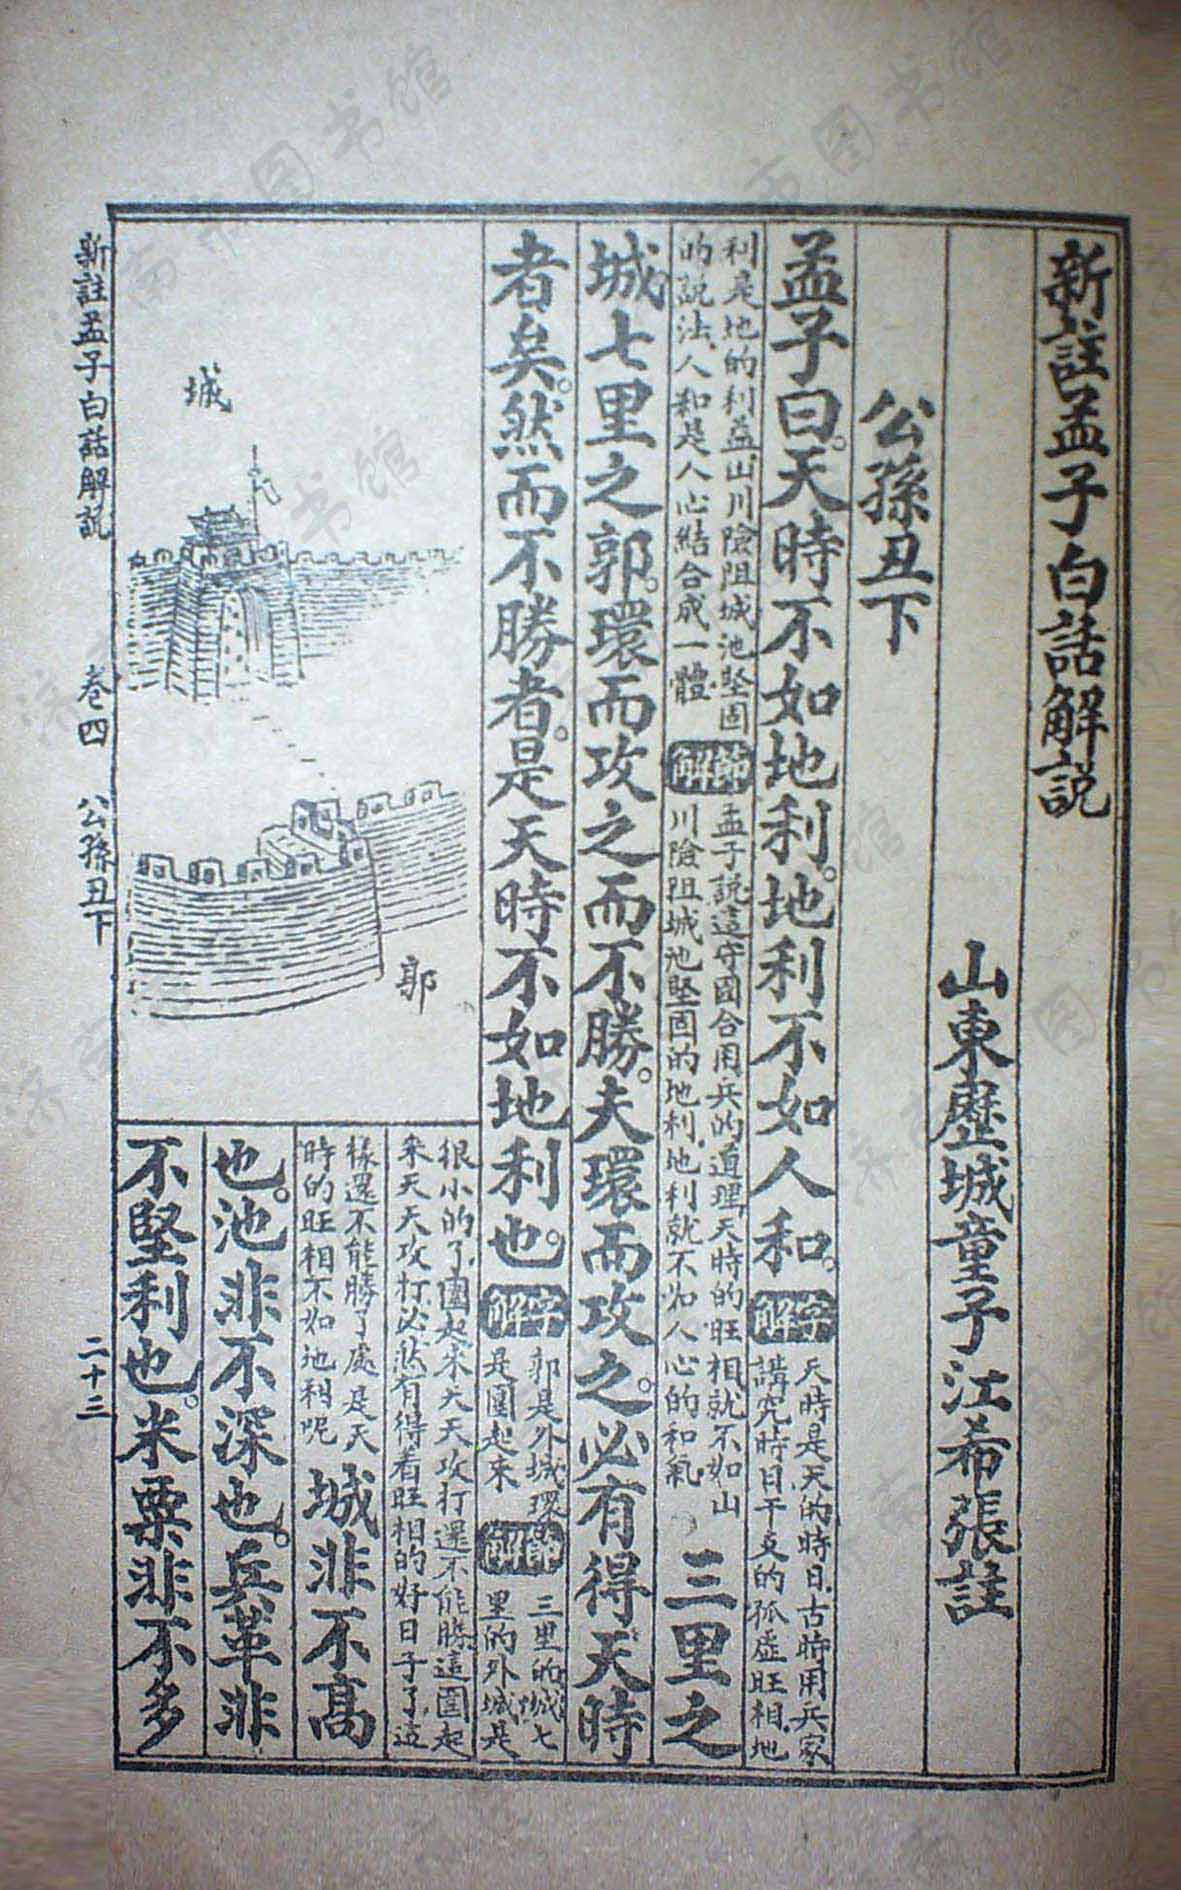 新註孟子白話解説
山東歷城童子江希張註
公孫丑下
孟子曰。天時不如地利。地利不如人和。
字解
天時是天的時日、古時用兵家
講究時日干支的孤虛旺相、地
利是地的利益、山川險阻城池堅固
的説法、人和是人心結合成一體
節解
孟子説這守國合用兵的道理、天時的旺相就不如山
川險阻城池堅固的地利、地利就不如人心的和氣
三里之
城七里之郭。環而攻之而不勝。夫環而攻之。必有得天時
者矣。然而不勝者。是天時不如地利也。
字解
郭是外城環
是圍起來
節解
三里的城七
里的外城是
很小的了、圍起來天天攻打還不能勝、這圍起
來天天攻打、必然有得着旺相的好日子了、這
樣還不能勝了處是天
時的旺相不如地利呢
城非不高
也。池非不深也。兵革非
不堅利也。米粟非不多
城
郭
新註孟子白話解説 卷四 公孫丑下 二十三
济南市图书馆